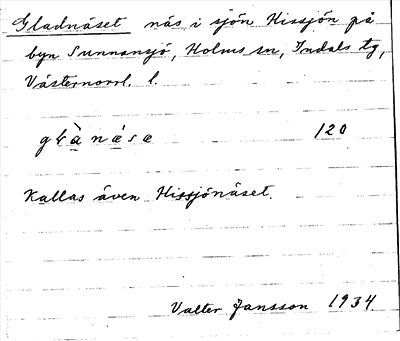 Gladnäset näs i sjön Hissjön på
byn Sunnansjö, Holms sn, Indals tg,
Västernorrl. l.
120
Kallas även Hissjönäset.
Valter Jansson 1934.